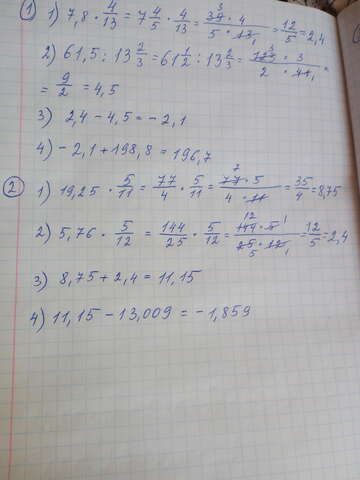 ① 1) 7,8 · 4/13 = 7 4/5 · 4/13 = 39 · 4 / 5 · 13 = 12/5 = 2,4
2) 61,5 : 13 2/3 = 61 1/2 : 13 2/3 = 123 · 3 / 2 · 41
= 9/2 = 4,5
3) 2,4 - 4,5 = - 2,1
4) - 2,1 + 198,8 = 196,7
② 1) 19,25 · 5/11 = 77/4 · 5/11 = 77 · 5 / 4 · 11 = 35/4 = 8,75
2) 5,76 · 5/12 = 144/25 · 5/12 = 144 · 5 / 25 · 12 = 12/5 = 2,4
3) 8,75 + 2,4 = 11,15
4) 11,15 - 13,009 = - 1,859